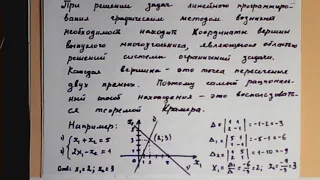 При решении задач линейного программиро-
вания графическим методом возникает
необходимость находить координаты вершины
выпуклого многоугольника, являющегося областью
решений системы ограничений задачи.
Каждая вершина - это точка пересечения
двух прямых. Поэтому самый рациональ-
ный способ нахождения - это воспользовать
ся теоремой Крамера.
Например:
1) { x₁ + x₂ = 5
2) { 2x₁ - x₂ = 1
(2;3)
x₁
Δ₀ = | 1 1 2 -1 | = -1-2=-3
Δ₁ = | 5 1 1 -1 | = -5-1=-6
Δ₂ = | 1 5 2 1 | = 1-10=-9
Ответ: x₁=2; x₂=3